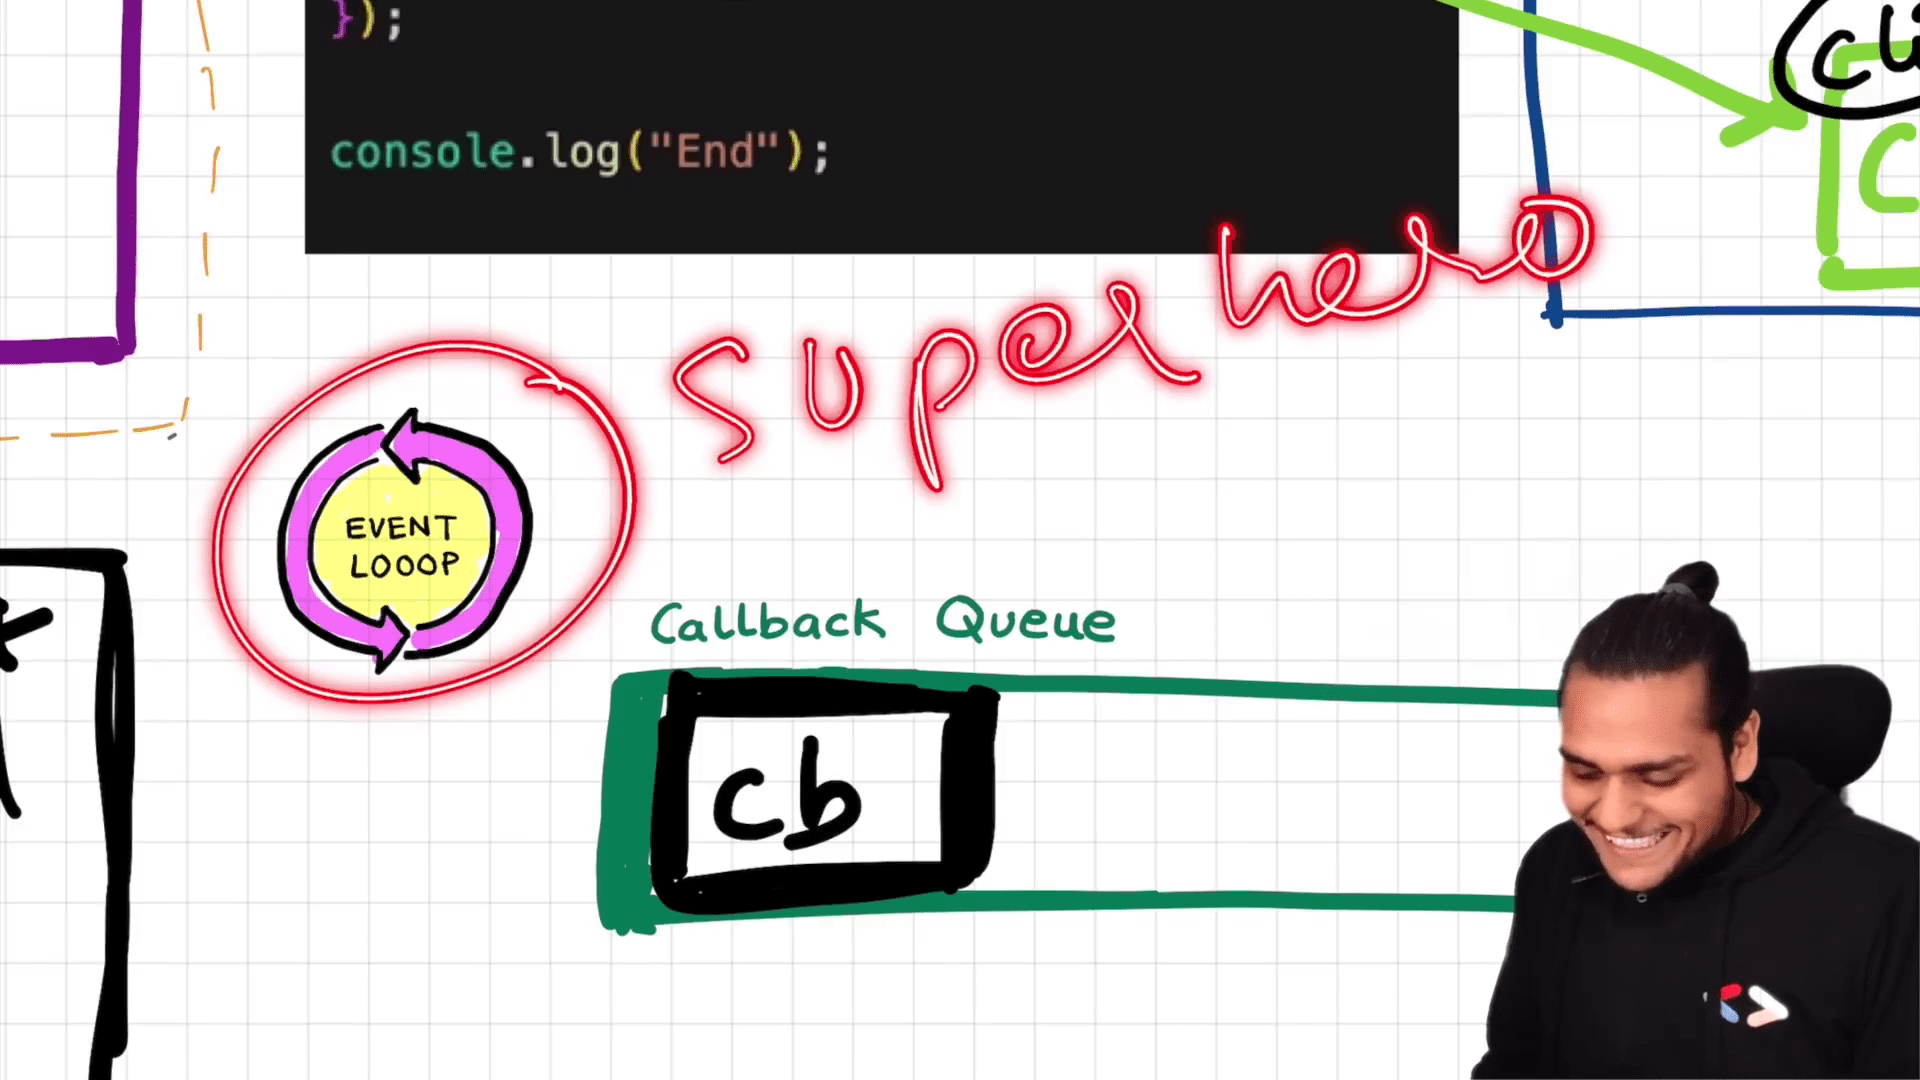 });
console.log("End");
cli
C
super hero
EVENT
LOOOP
Callback Queue
cb